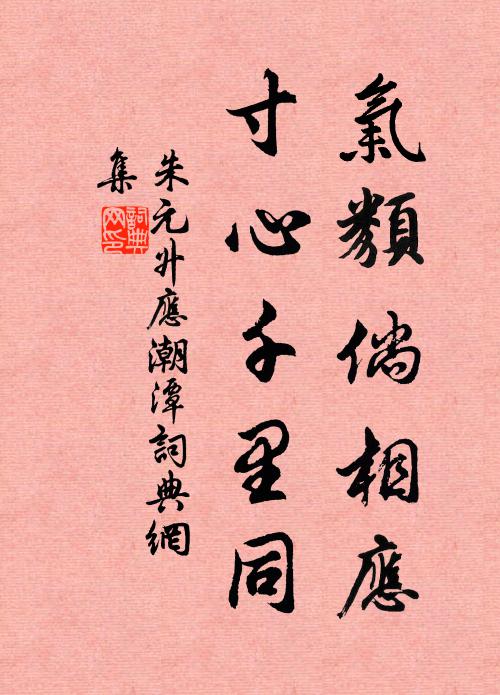 氣類倘相應
寸心千里同
朱元升應潮潭詞典網
集
詞典網印